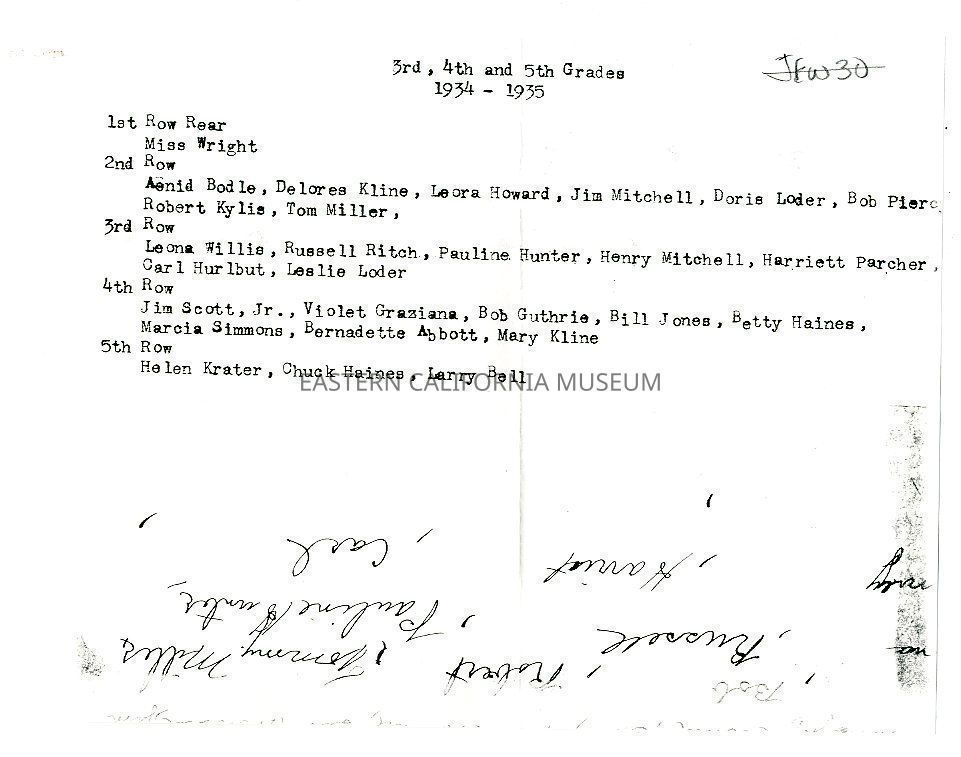 3rd, 4th and 5th Grades
1934 - 1935
JFW30
1st Row Rear
Miss Wright
2nd Row
Aenid Bodle, Delores Kline, Leora Howard, Jim Mitchell, Doris Loder, Bob Pierc
Robert Kylis, Tom Miller,
3rd Row
Leona Willis, Russell Ritch, Pauline Hunter, Henry Mitchell, Harriett Parcher,
Carl Hurlbut, Leslie Loder
4th Row
Jim Scott, Jr., Violet Graziana, Bob Guthrie, Bill Jones, Betty Haines,
Marcia Simmons, Bernadette Abbott, Mary Kline
5th Row
Helen Krater, Chuck Haines, Larry Bell
EASTERN CALIFORNIA MUSEUM
Bob
Russell, Robert, Tommy Miller
Pauline Hunter,
Harriet, Carl,